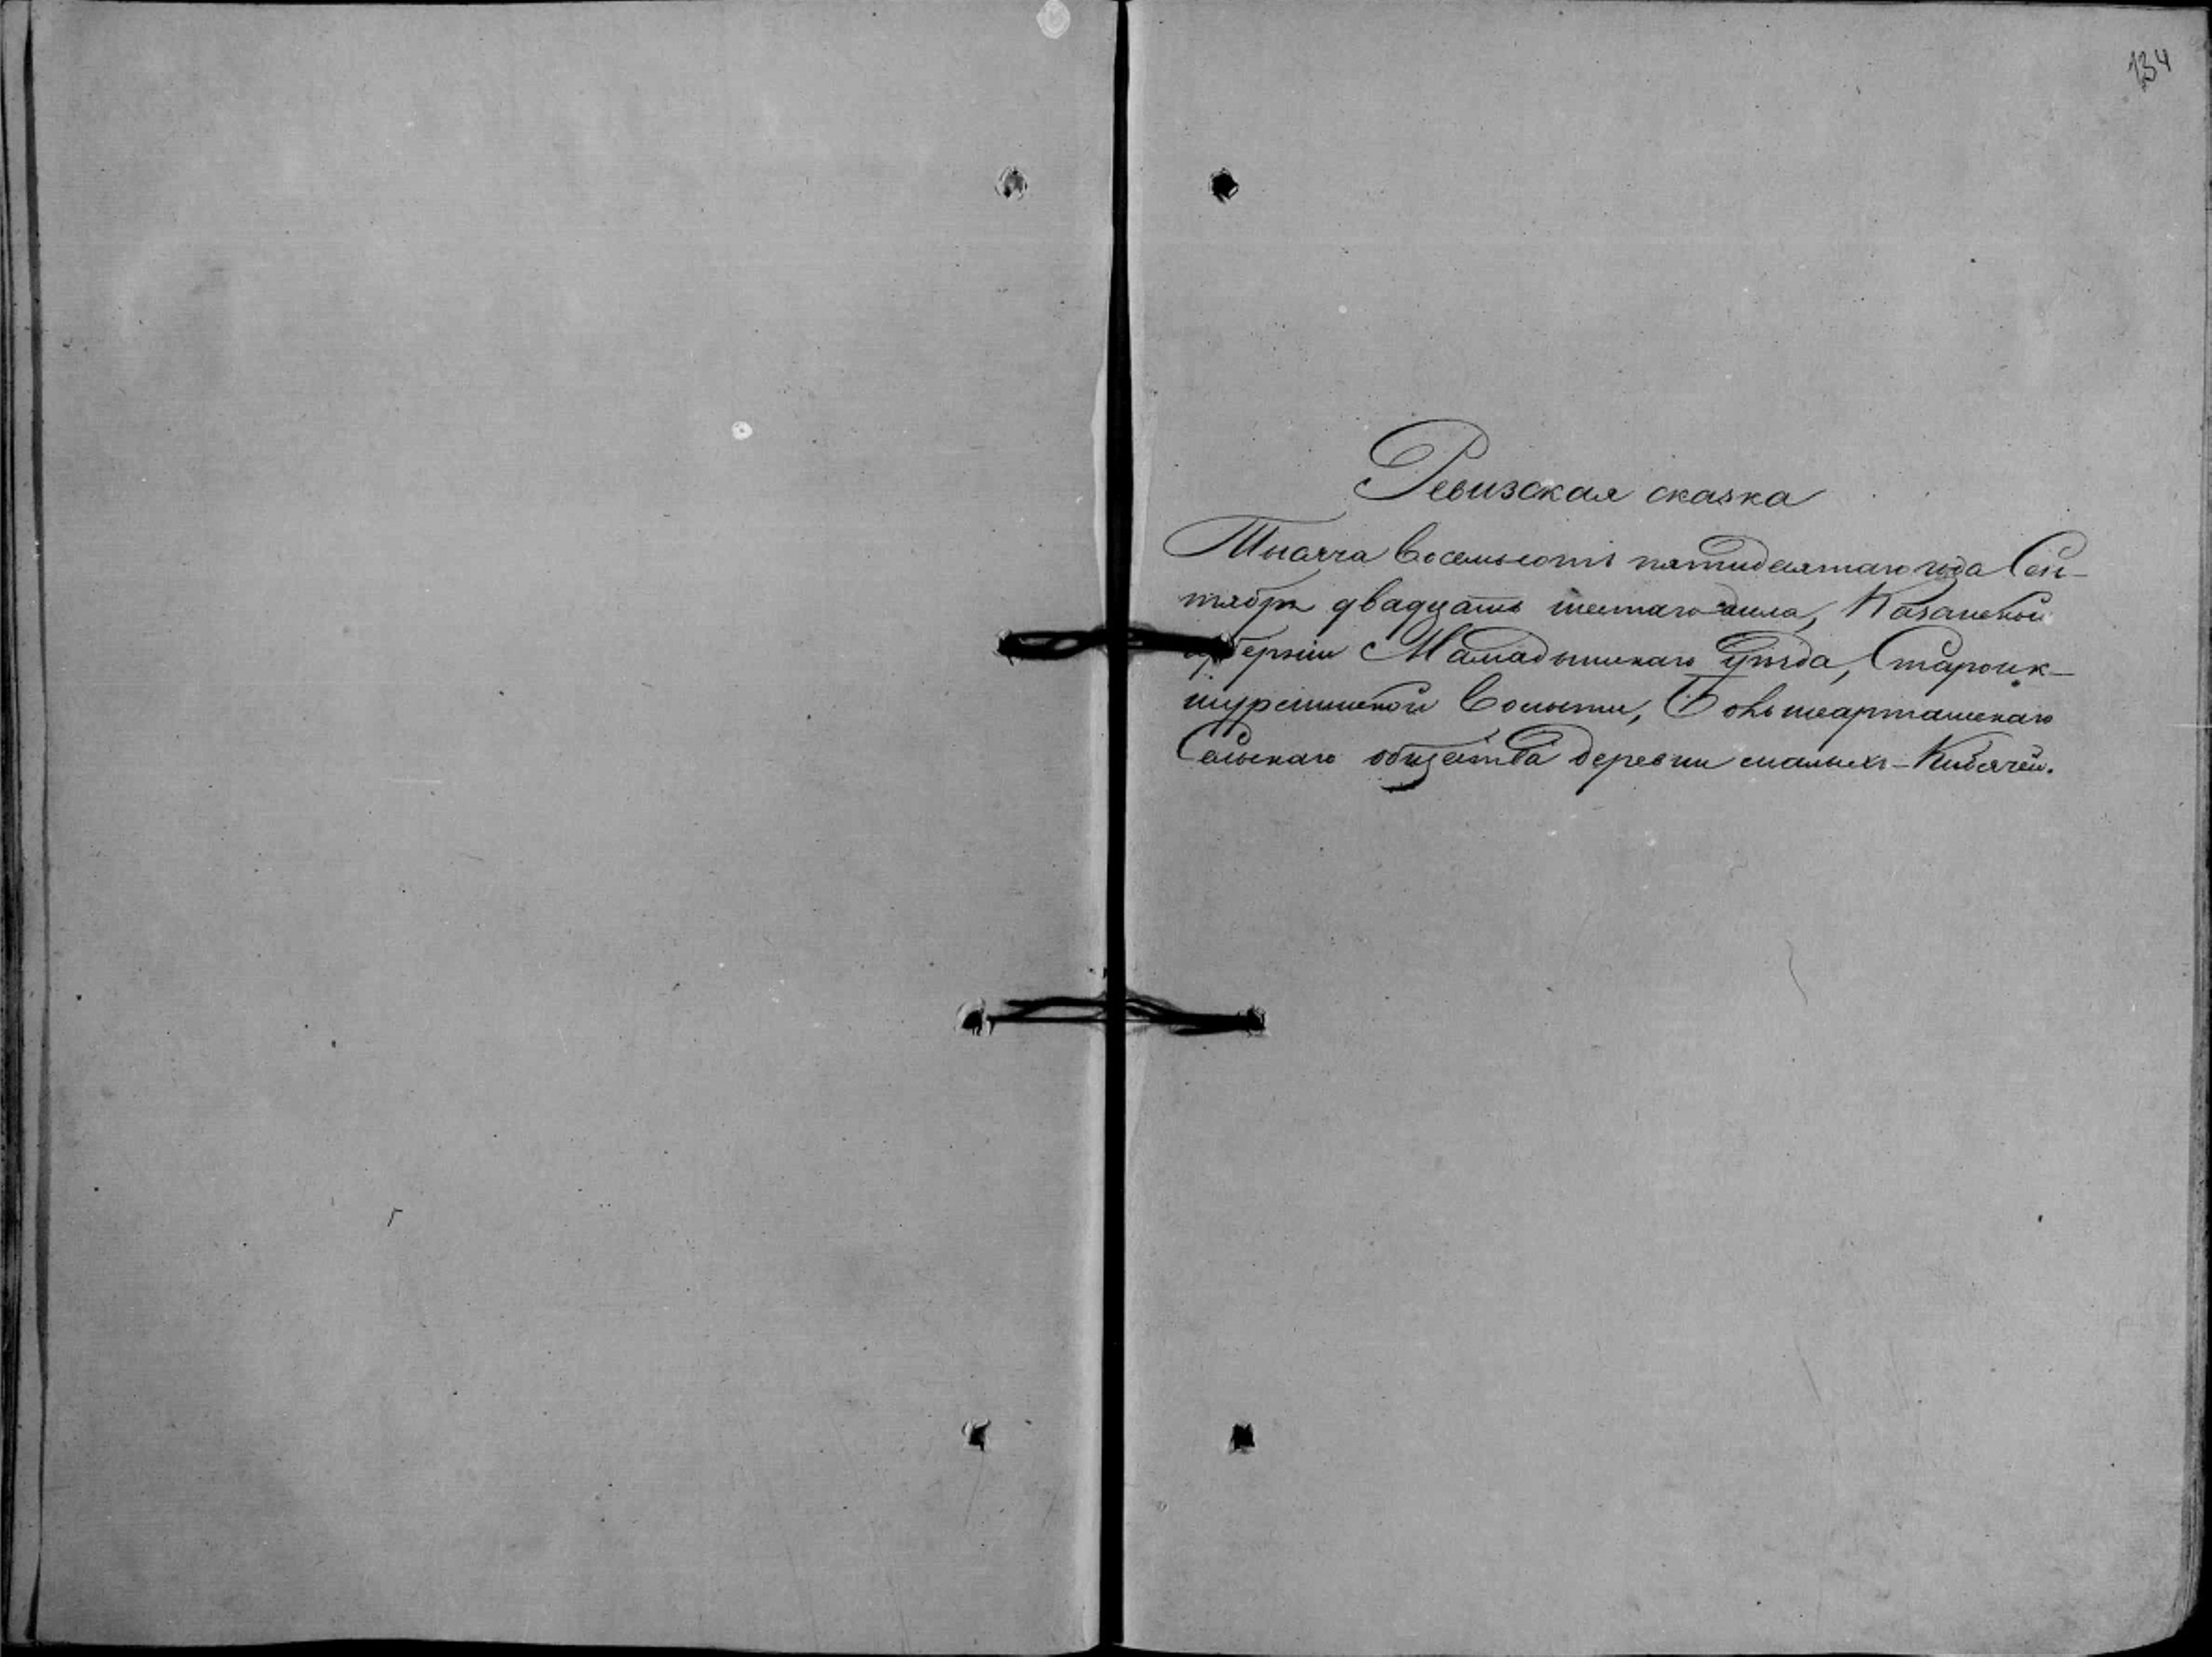 134
Ревизская сказка
Тысяча восемьсотъ пятидесятаго года Сен-
тября двадцать шестаго дня, Казанской
губерніи Мамадышскаго уѣзда, Староик-
шурминской волости, Большеарташскаго
Сельскаго общества деревни малыхъ-Кибячей.